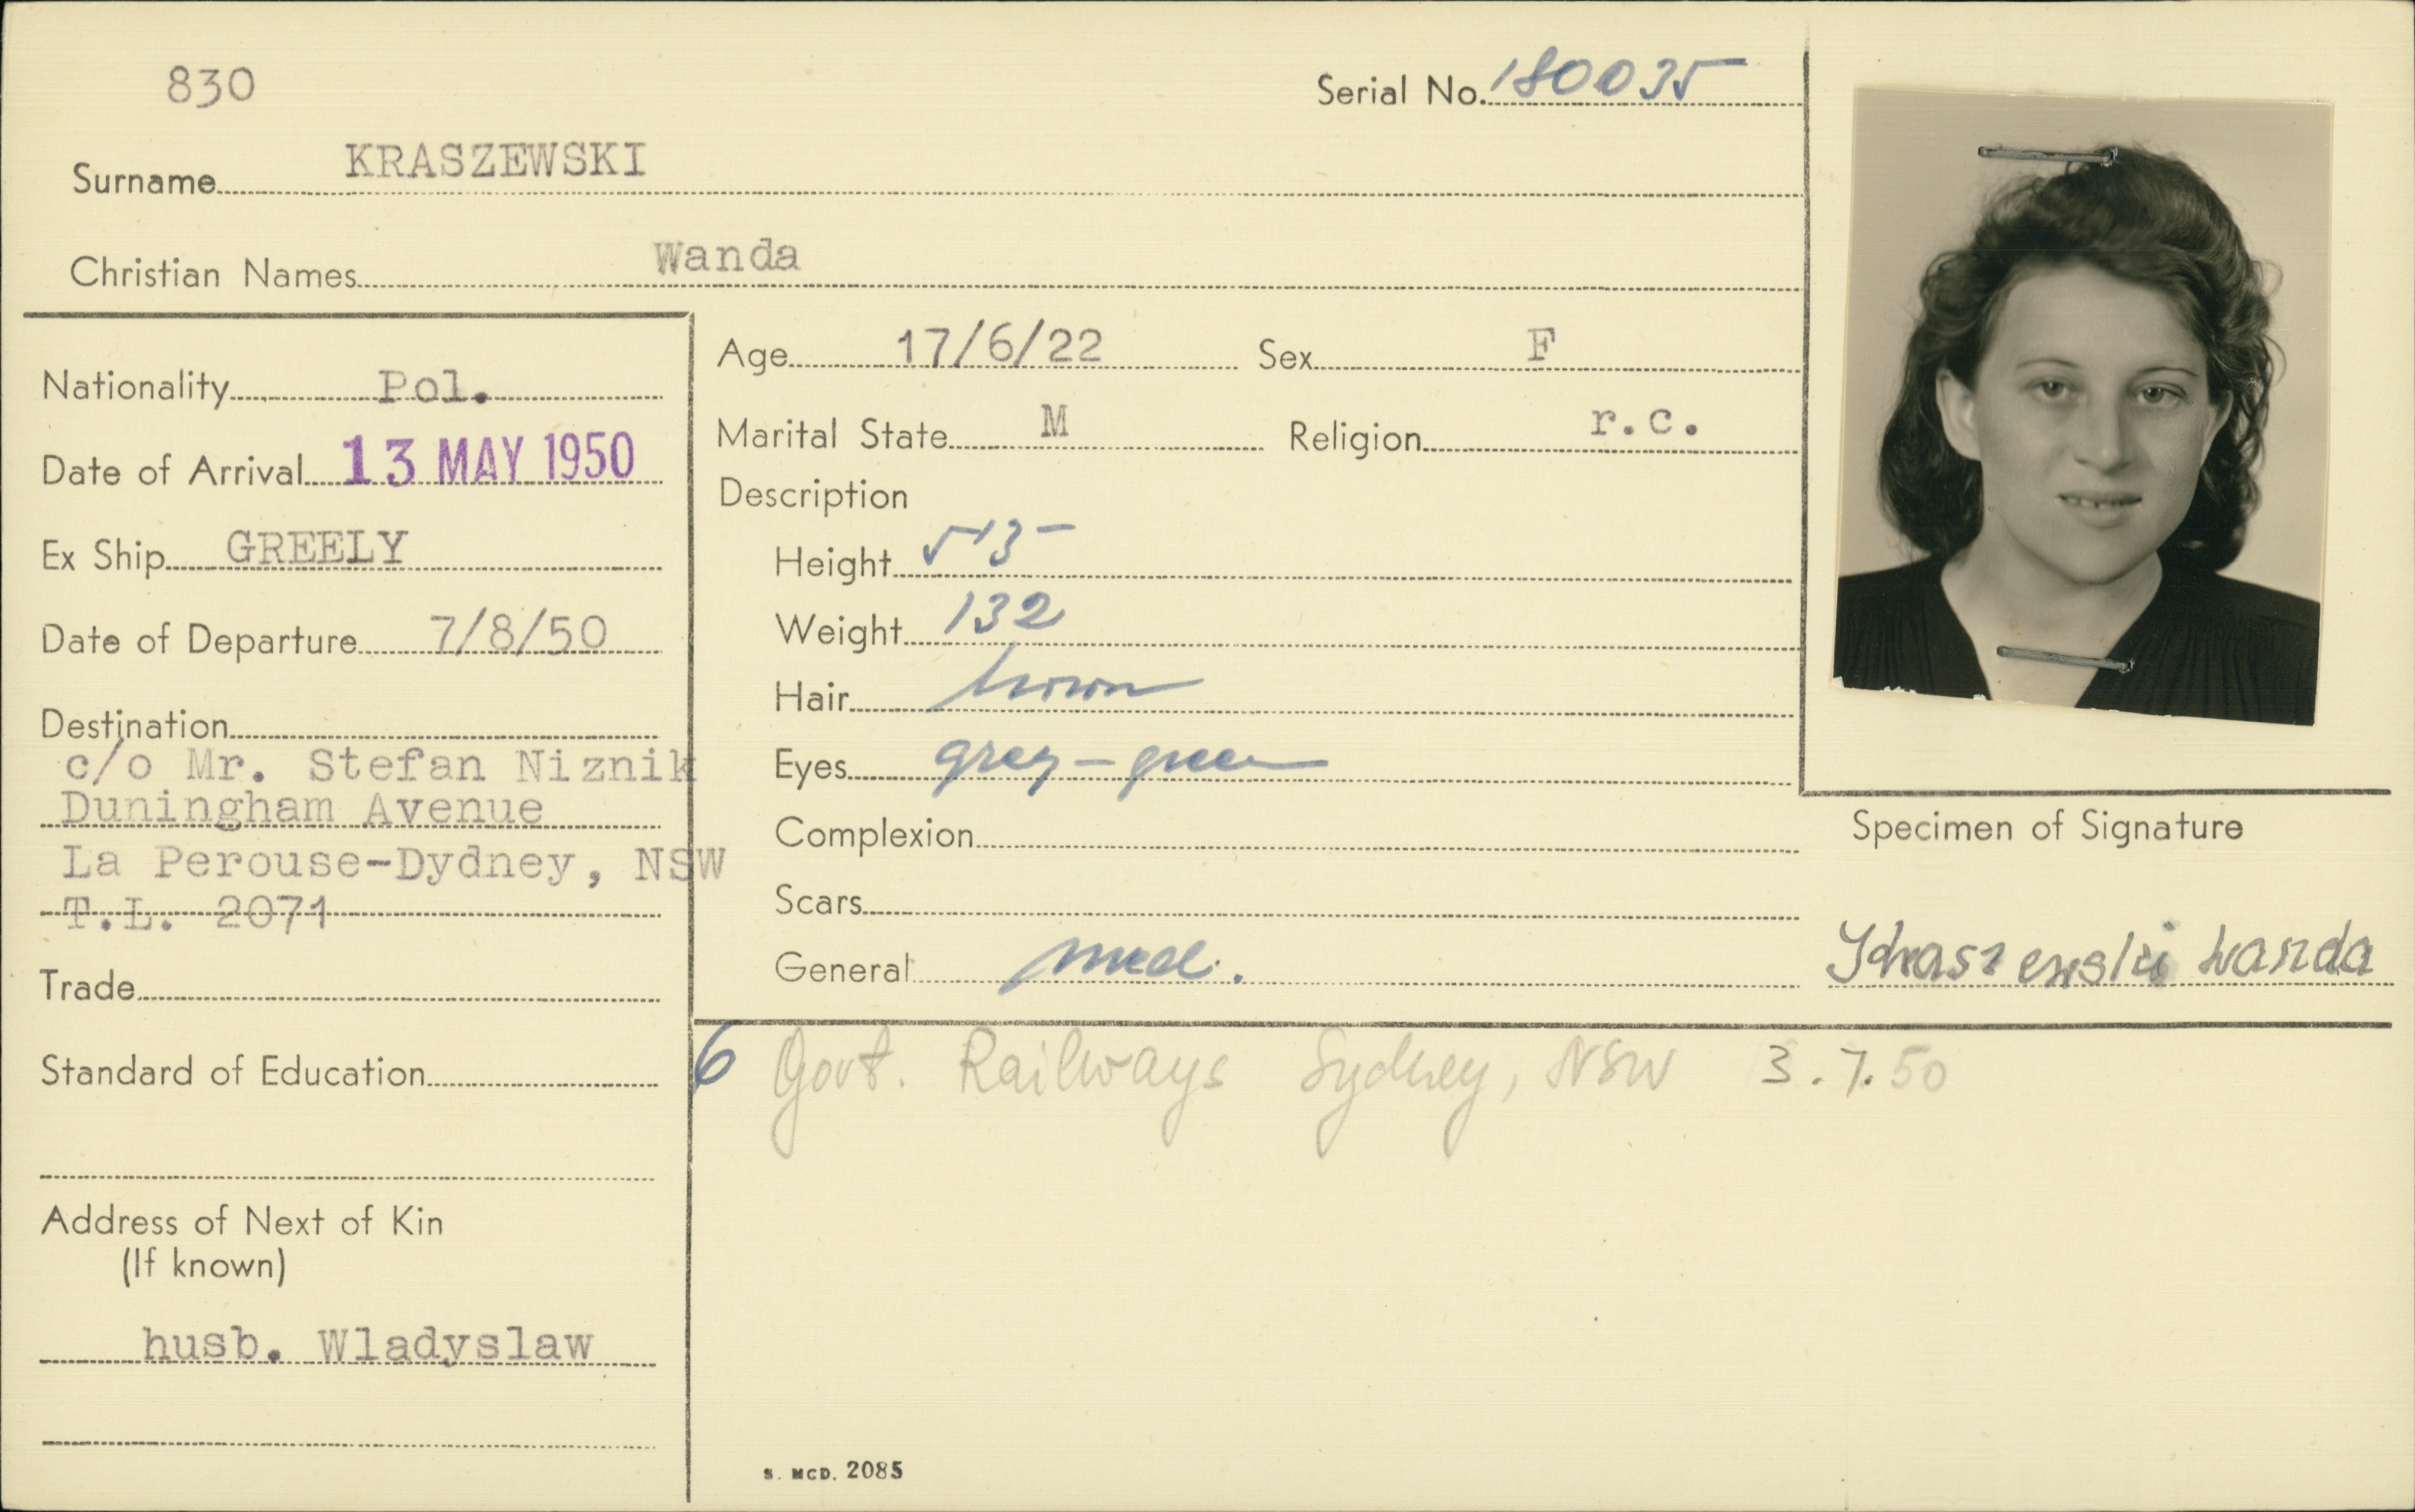 830
Serial No. 180035
Surname KRASZEWSKI
Christian Names Wanda
Nationality Pol.
Date of Arrival 13 MAY 1950
Ex Ship GREELY
Date of Departure 7/8/50
Destination
c/o Mr. Stefan Niznik
Duningham Avenue
La Perouse-Dydney, NSW
T.L. 2071
Trade
Standard of Education
Address of Next of Kin
(If known)
husb. Wladyslaw
Age 17/6/22 Sex F
Marital State M Religion r.c.
Description
Height 5'3"
Weight 132
Hair brown
Eyes grey-green
Complexion
Scars
General med.
Specimen of Signature
Kraszewski Wanda
6 Govt. Railways Sydney, NSW 3.7.50
S. MCD. 2085